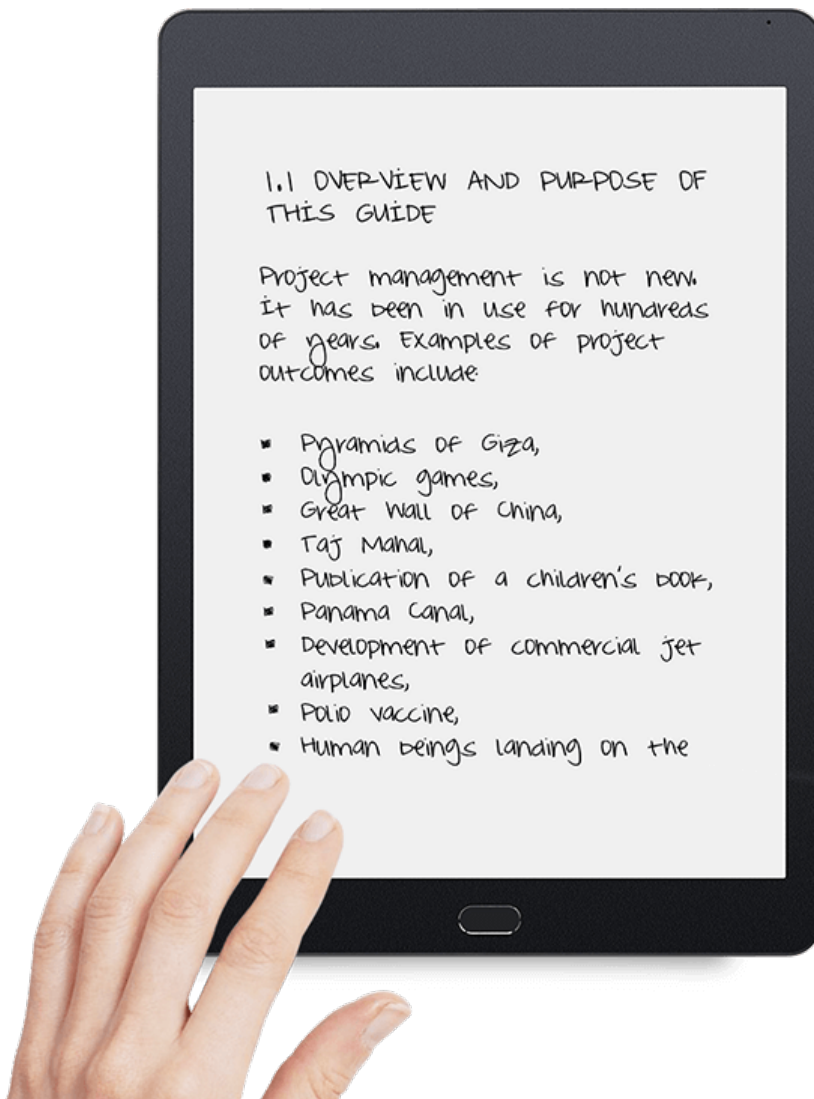 1.1 OVERVIEW AND PURPOSE OF
THIS GUIDE
Project management is not new.
It has been in use for hundreds
of years. Examples of project
outcomes include:
▪ Pyramids of Giza,
▪ Olympic games,
▪ Great Wall of China,
▪ Taj Mahal,
▪ Publication of a children's book,
▪ Panama Canal,
▪ Development of commercial jet
airplanes,
▪ Polio vaccine,
▪ Human beings landing on the